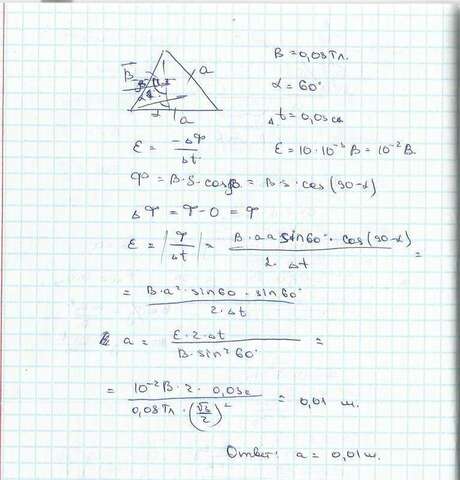 B = 0,03Тл.
α = 60°
B⃗
a
Δt = 0,03с
a
ε = -ΔФ/Δt
ε = 10·10⁻³ В = 10⁻² В.
Ф = B·S·cosβ = B·S·cos(90-α)
ΔФ = Ф-0 = Ф
ε = |Ф/Δt| = B·a·a sin60°·cos(90-α)/2·Δt =
= B·a²·sin60·sin60°/2·Δt
a = ε·2·Δt/B·sin²60° =
= 10⁻²В·2·0,03с/0,03Тл·(√3/2)² = 0,01 м.
Ответ: a = 0,01м.